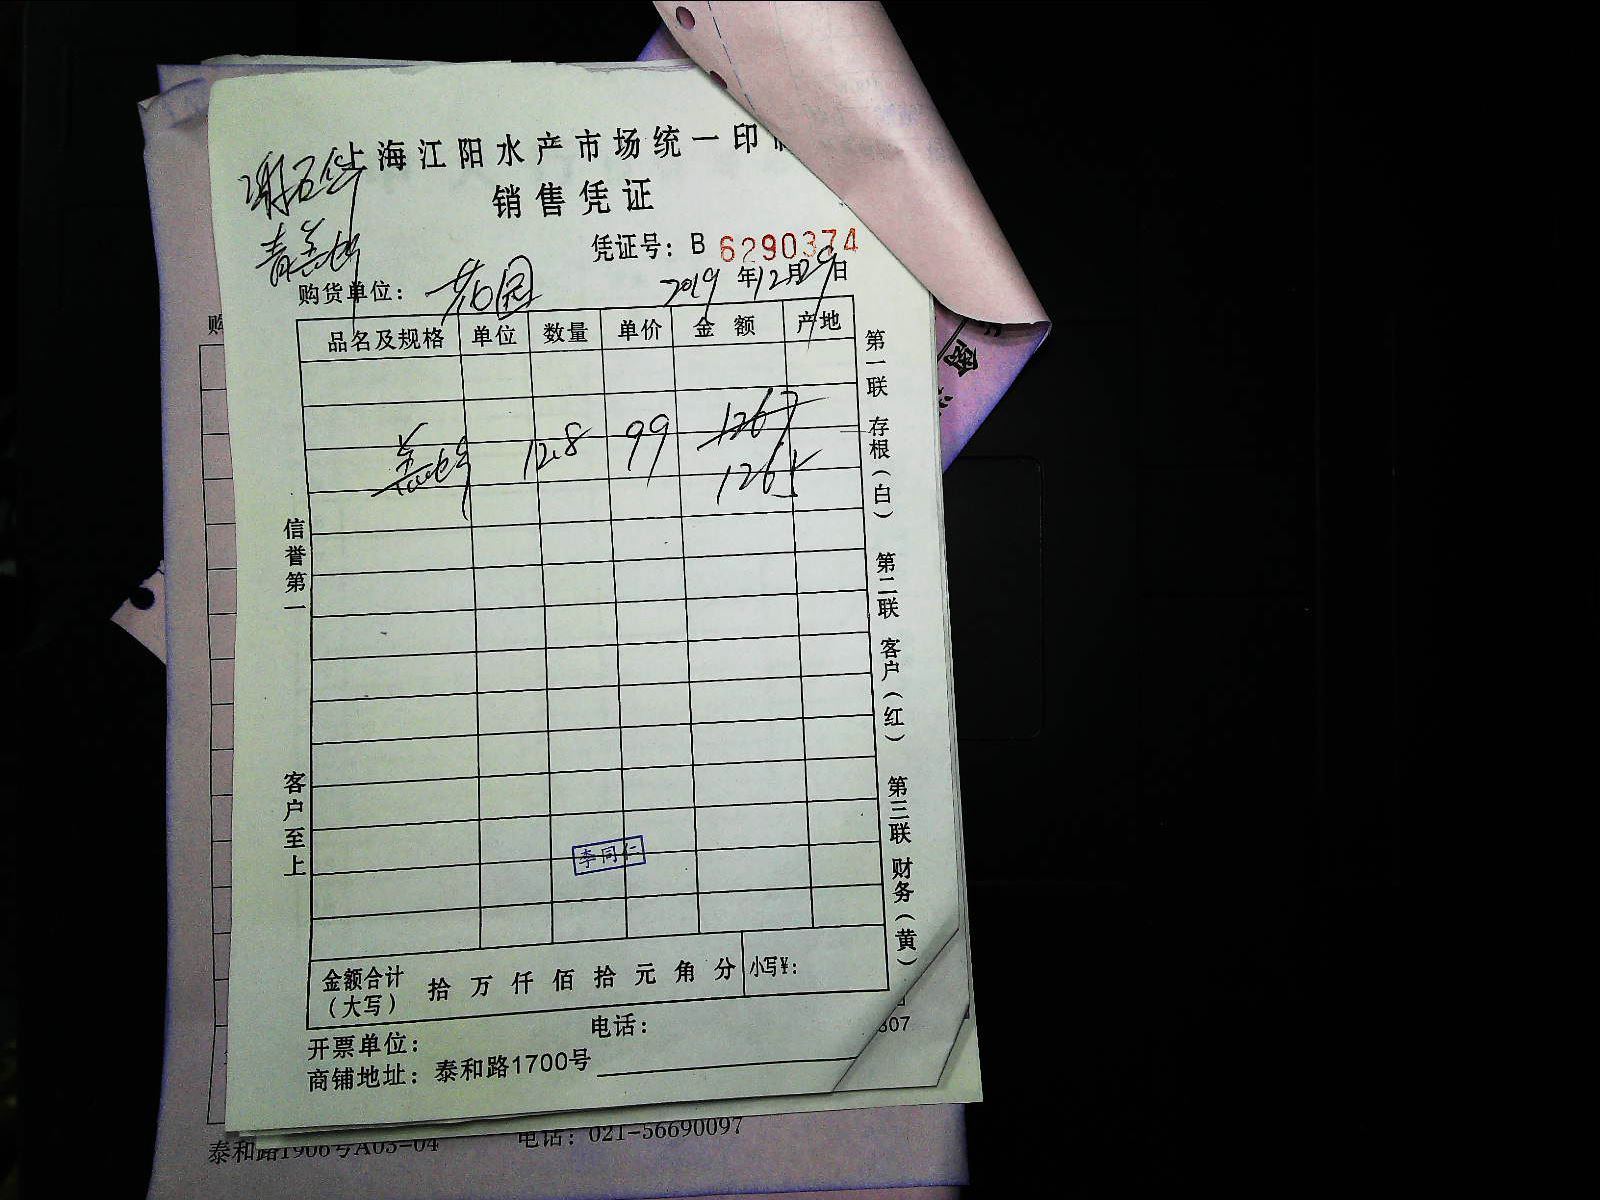 上海江阳水产市场统一印
销售凭证
凭证号：B 6290374
购货单位：花园 2019年12月29日
品名及规格 单位 数量 单价 金额 产地
12.8 99 1267
1265
第一联 存根（白） 第二联 客户（红） 第三联 财务（黄）
信誉第一
客户至上
李同仁
金额合计（大写） 拾 万 仟 佰 拾 元 角 分 小写¥：
开票单位： 电话：
商铺地址：泰和路1700号
307
泰和路1906号A03-04 电话：021-56690097